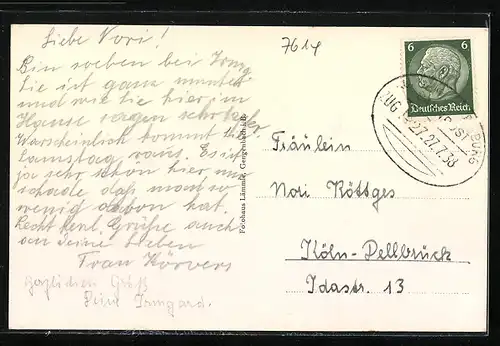 Liebe Nori!
Bin soeben bei Irmg.
Sie ist ganz munter
und wie sie hier im
Hause sagen sehr
Warscheinlich kommt sie
Samstag raus. Es ist
ja sehr schön hier, nur
schade daß man so
wenig davon hat.
Recht herzl. Grüße auch
an Deine Lieben
Frau Körvers
Herzlichen Gruß
Deine Irmgard.
7614
Fotohaus Lämmle, Gengenbach
6 6
Deutsches Reich
ZUG 27.7.38
BURG
Fräulein
Nori Röttges
Köln-Dellbrück
Idastr. 13